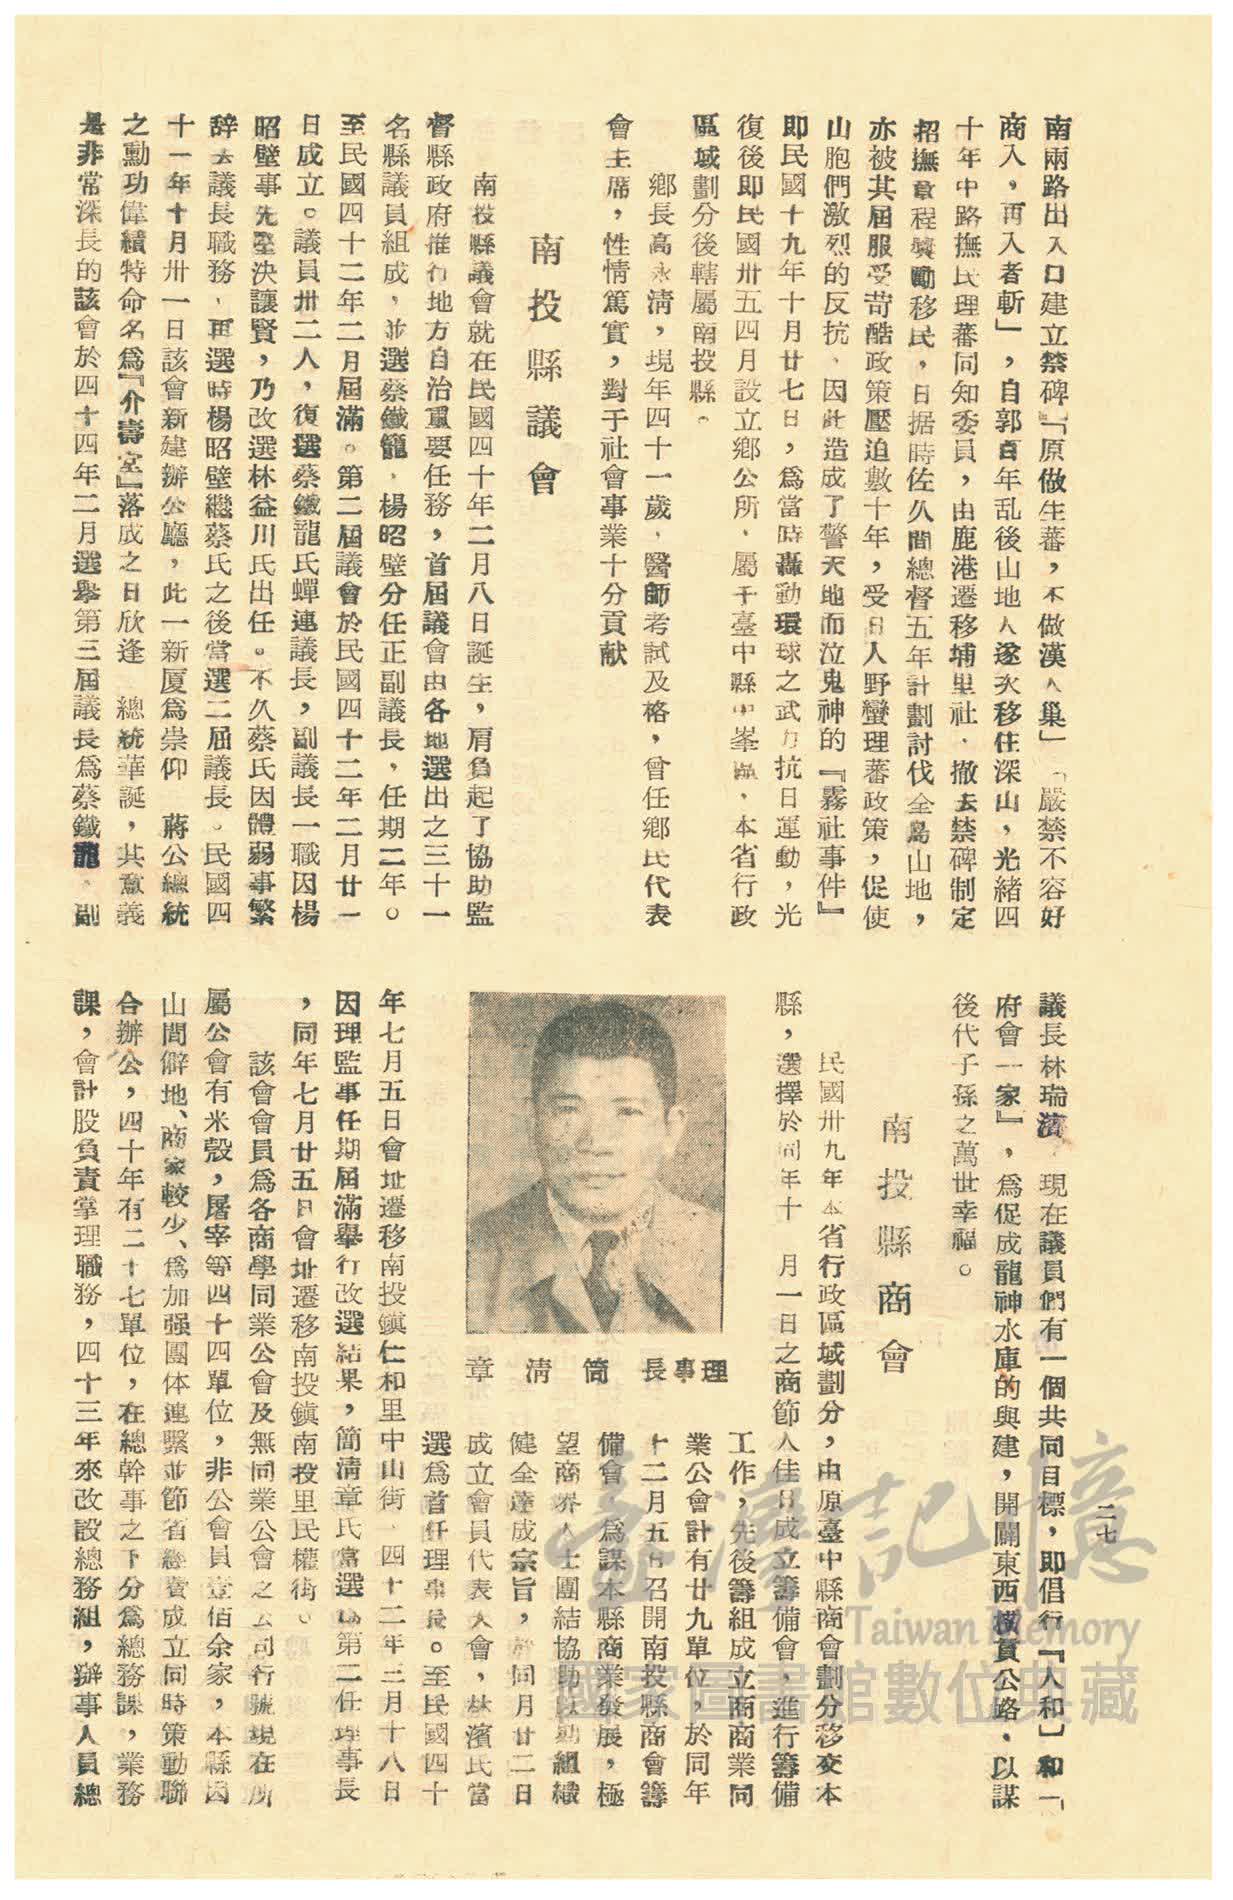 南兩路出入口建立禁碑」「原做生蕃，不做漢人巢」「嚴禁不容好
商入，再入者斬」，自郭百年乱後山地人遂次移住深山，光緒四
十年中路撫民理蕃同知委員，由鹿港遷移埔里社．撤去禁碑制定
招撫章程獎勵移民，日据時佐久間總督五年計劃討伐全島山地，
亦被其屈服受苛酷政策壓迫數十年，受日人野蠻理蕃政策，促使
山胞們激烈的反抗．因此造成了警天地而泣鬼神的『霧社事件』
即民國十九年十月廿七日，為當時轟動環球之武力抗日運動，光
復後即民國卅五四月設立鄉公所．屬于臺中縣中峯區．本省行政
區域劃分後轄屬南投縣。
鄉長高永清，現年四十一歲．醫師考試及格，曾任鄉民代表
會主席，性情篤實，對于社會事業十分貢献
南投縣議會
南投縣議會就在民國四十年二月八日誕生，肩負起了協助監
督縣政府推行地方自治重要任務，首屆議會由各地選出之三十一
名縣議員組成，並選蔡鐵龍．楊昭壁分任正副議長，任期二年。
至民國四十二年二月屆滿。第二屆議會於民國四十二年二月廿一
日成立。議員卅二人，復選蔡鐵龍氏蟬連議長，副議長一職因楊
昭壁事先堅決讓賢，乃改選林益川氏出任。不久蔡氏因體弱事繁
辞去議長職務．再選時楊昭壁繼蔡氏之後當選二屆議長．民國四
十一年十月卅一日該會新建辦公廳，此一新厦為崇仰　蔣公總統
之勳功偉績特命名為『介壽堂』落成之日欣逢　總統華誕，其意義
是非常深長的該會於四十四年二月選舉第三屆議長為蔡鐵龍．副
議長林瑞濱．現在議員們有一個共同目標，即倡行『人和』和「
府會一家』，為促成龍神水庫的與建，開關東西橫貫公路．以謀
後代子孫之萬世幸福。
二七
南投縣商會
民國卅九年本省行政區域劃分，由原臺中縣商會劃分移交本
縣，選擇於同年十　月一日之商節人佳日成立籌備會，進行籌備
工作，先後籌組成立商商業同
業公會計有廿九單位，於同年
十二月五日召開南投縣商會籌
備會，為謀本縣商業發展，極
望商界人士團結協助以勤組織
健全達成宗旨，於同月廿二日
成立會員代表大會，林濱氏當
選為首任理事長。至民國四十
理事長　簡清章
年七月五日會址遷移南投鎮仁和里中山街．四十二年三月十八日
因理監事任期屆滿舉行改選結果，簡清章氏當選為第二任理事長
，同年七月廿五日會址遷移南投鎮南投里民權街。
該會會員為各商學同業公會及無同業公會之公司行號現在所
屬公會有米穀，屠宰等四十四單位，非公會員壹佰余家，本縣因
山間僻地、商家較少、為加强團体連繫並節省經費成立同時策動聯
合辦公，四十年有二十七單位，在總幹事之下分為總務課，業務
課，會計股負責掌理職務，四十三年來改設總務組，辦事人員總
臺灣記憶
Taiwan Memory
國家圖書館數位典藏